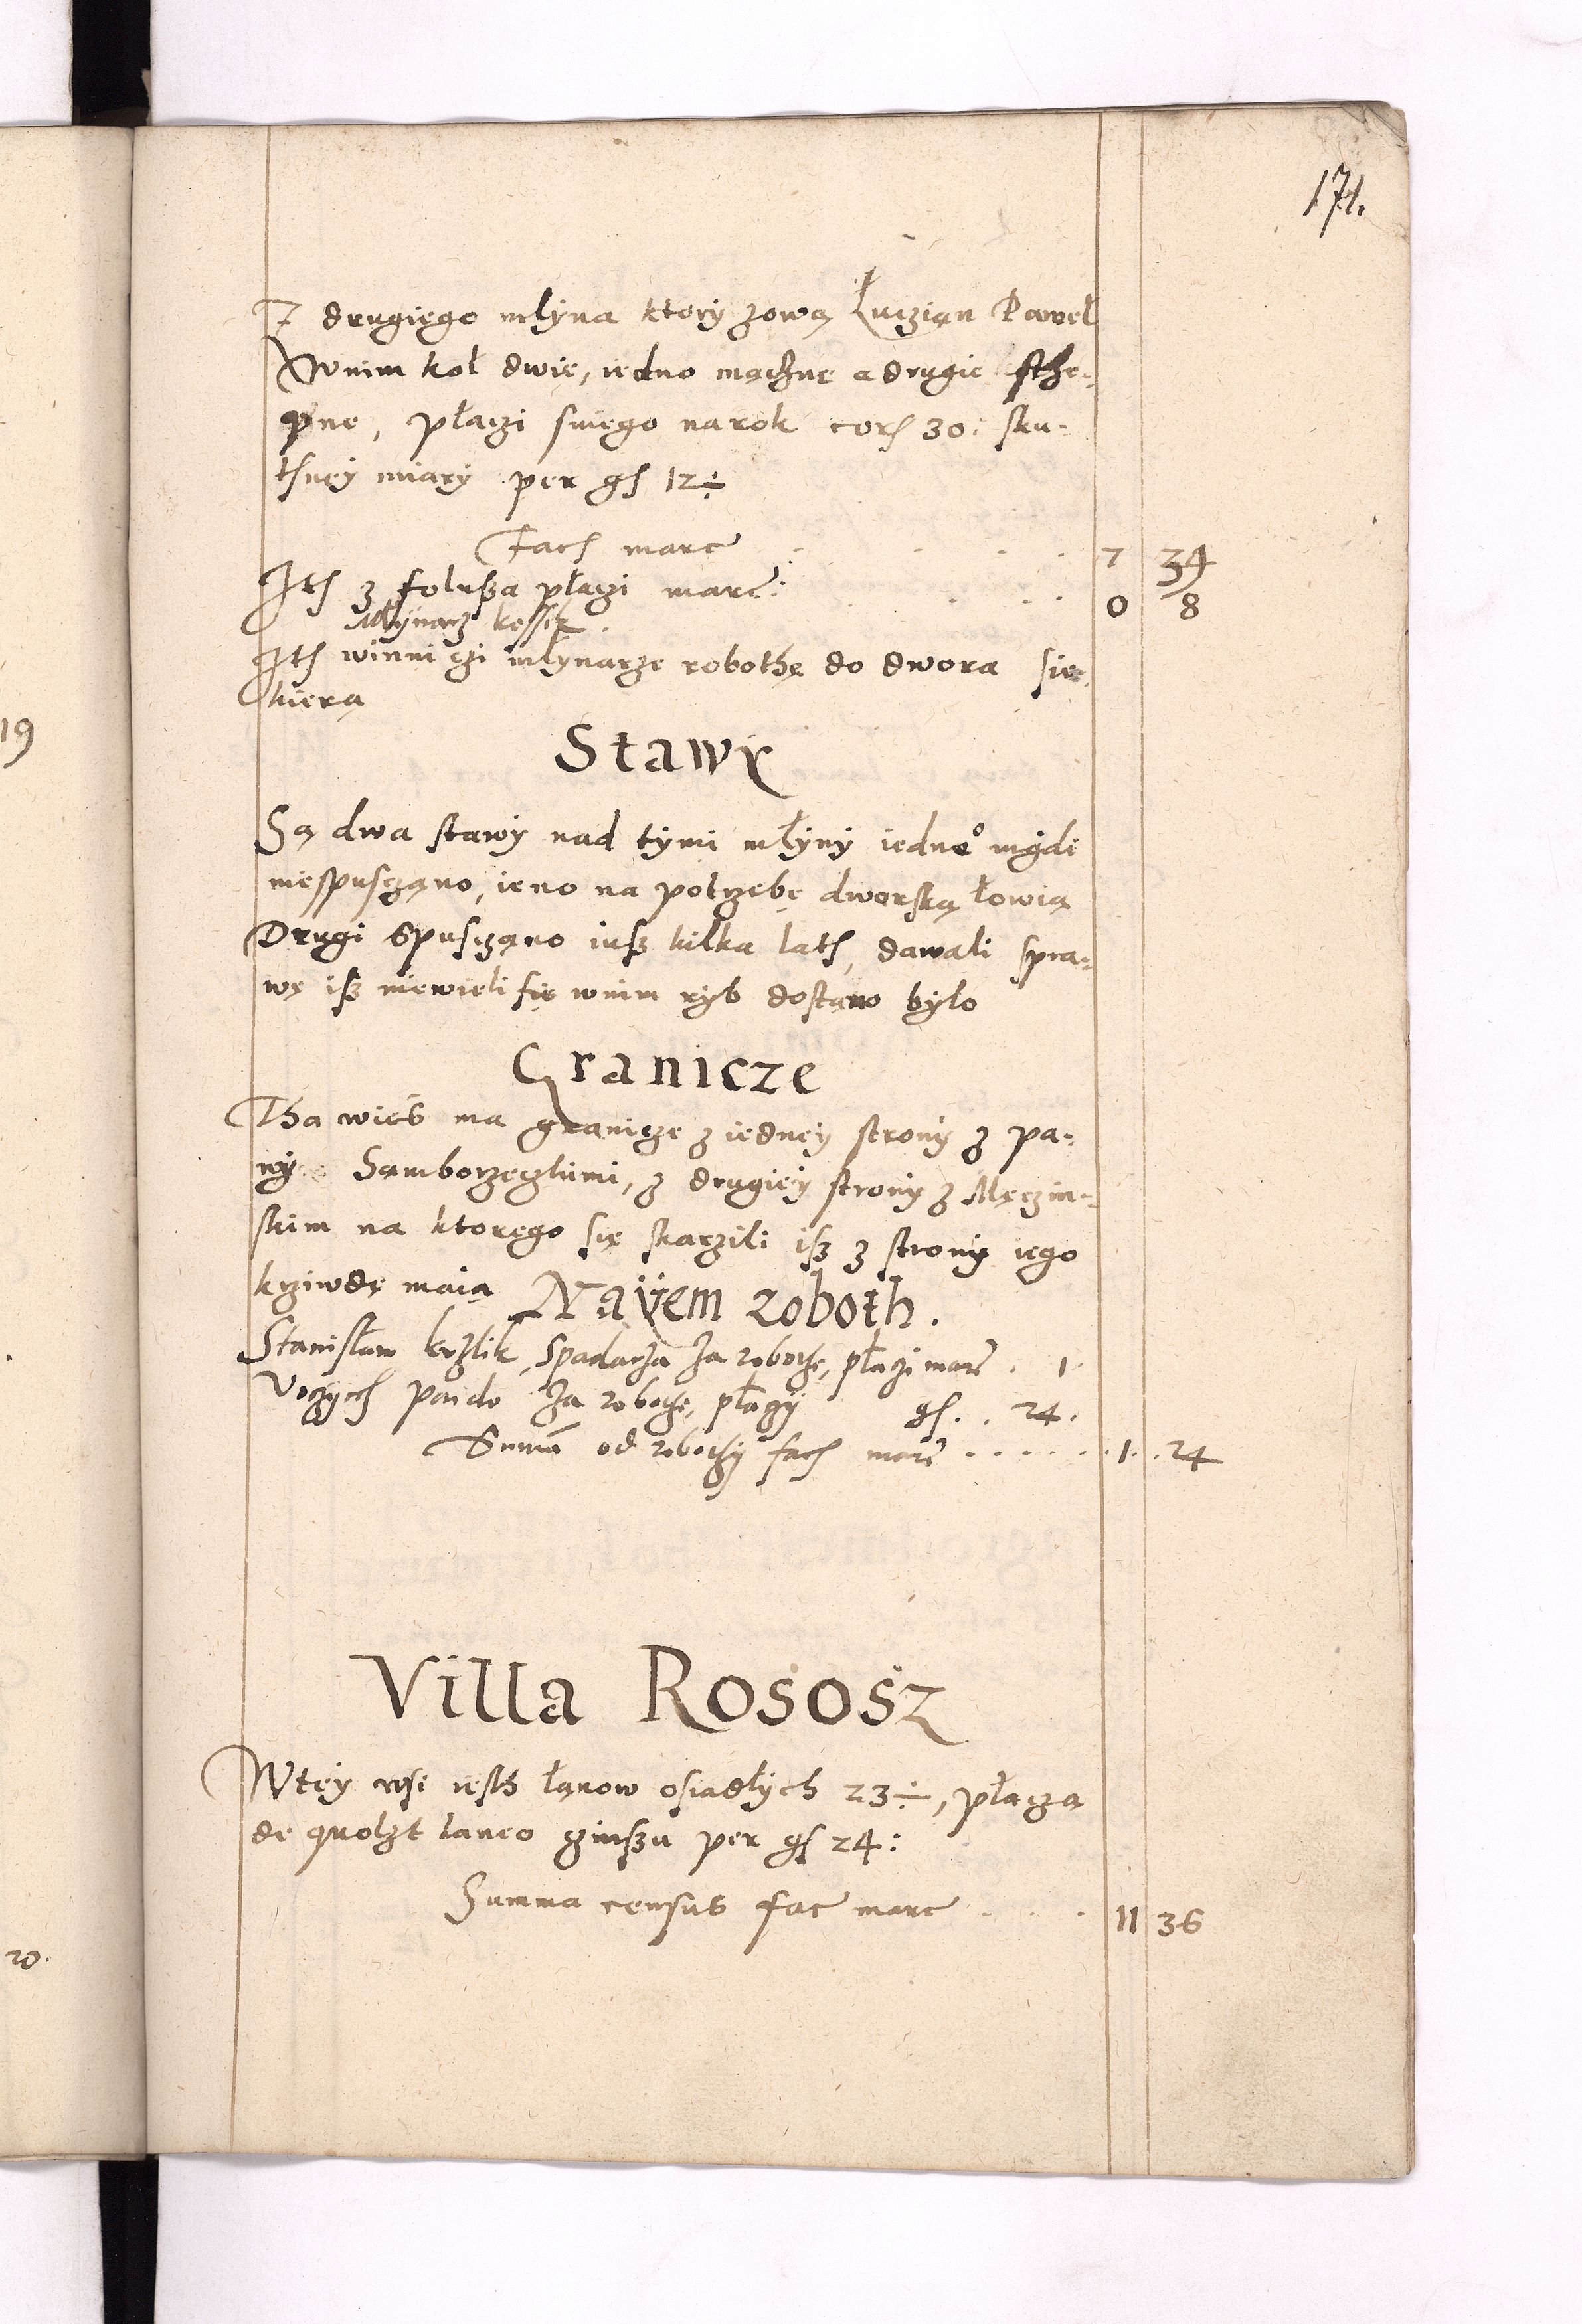 171.
Z drugiego młyna ktory zową Łuczian Paweł
Wnim koł dwie, iedno mączne a drugie sthę-
pne, płaczi sniego na rok cor 30: sku-
thney miary per gr 12÷
fach marc . . . . 7 34
Ith z folusza płaczi marc: . . . . 0 8
Młynarz kessek
Ith winni czi młynarze robothę do dwora sie-
kierą
Stawy
Są dwa stawy nad tymi młyny iedneo nigdi
niespusczano, ieno na potrzebę dworską łowią
Drugi Spusczano iusz kilka lath, dawali spra-
wę isz niewieli się wnim ryb dostano było
Granicze
Tha wieś ma granicze z iedney strony z pa-
ny Samborzeczkimi, z drugiey strony z Męczin-
skim na ktorego się skarzili isz z strony iego
krziwdę maią Nayem roboth.
Stanisław kozlik, Spadarza za robothę, płaczi marc . 1
za robothę, płaczy gr . . 24.
Suma od robothy fach marc . . . . . 1 . 24
Villa Rososz
Wtey wsi iesth łanow osiadłych 23÷, płaczą
de quolzt laneo czinszu per gr 24:
Summa census fac marc . . . 11 36
19
20.